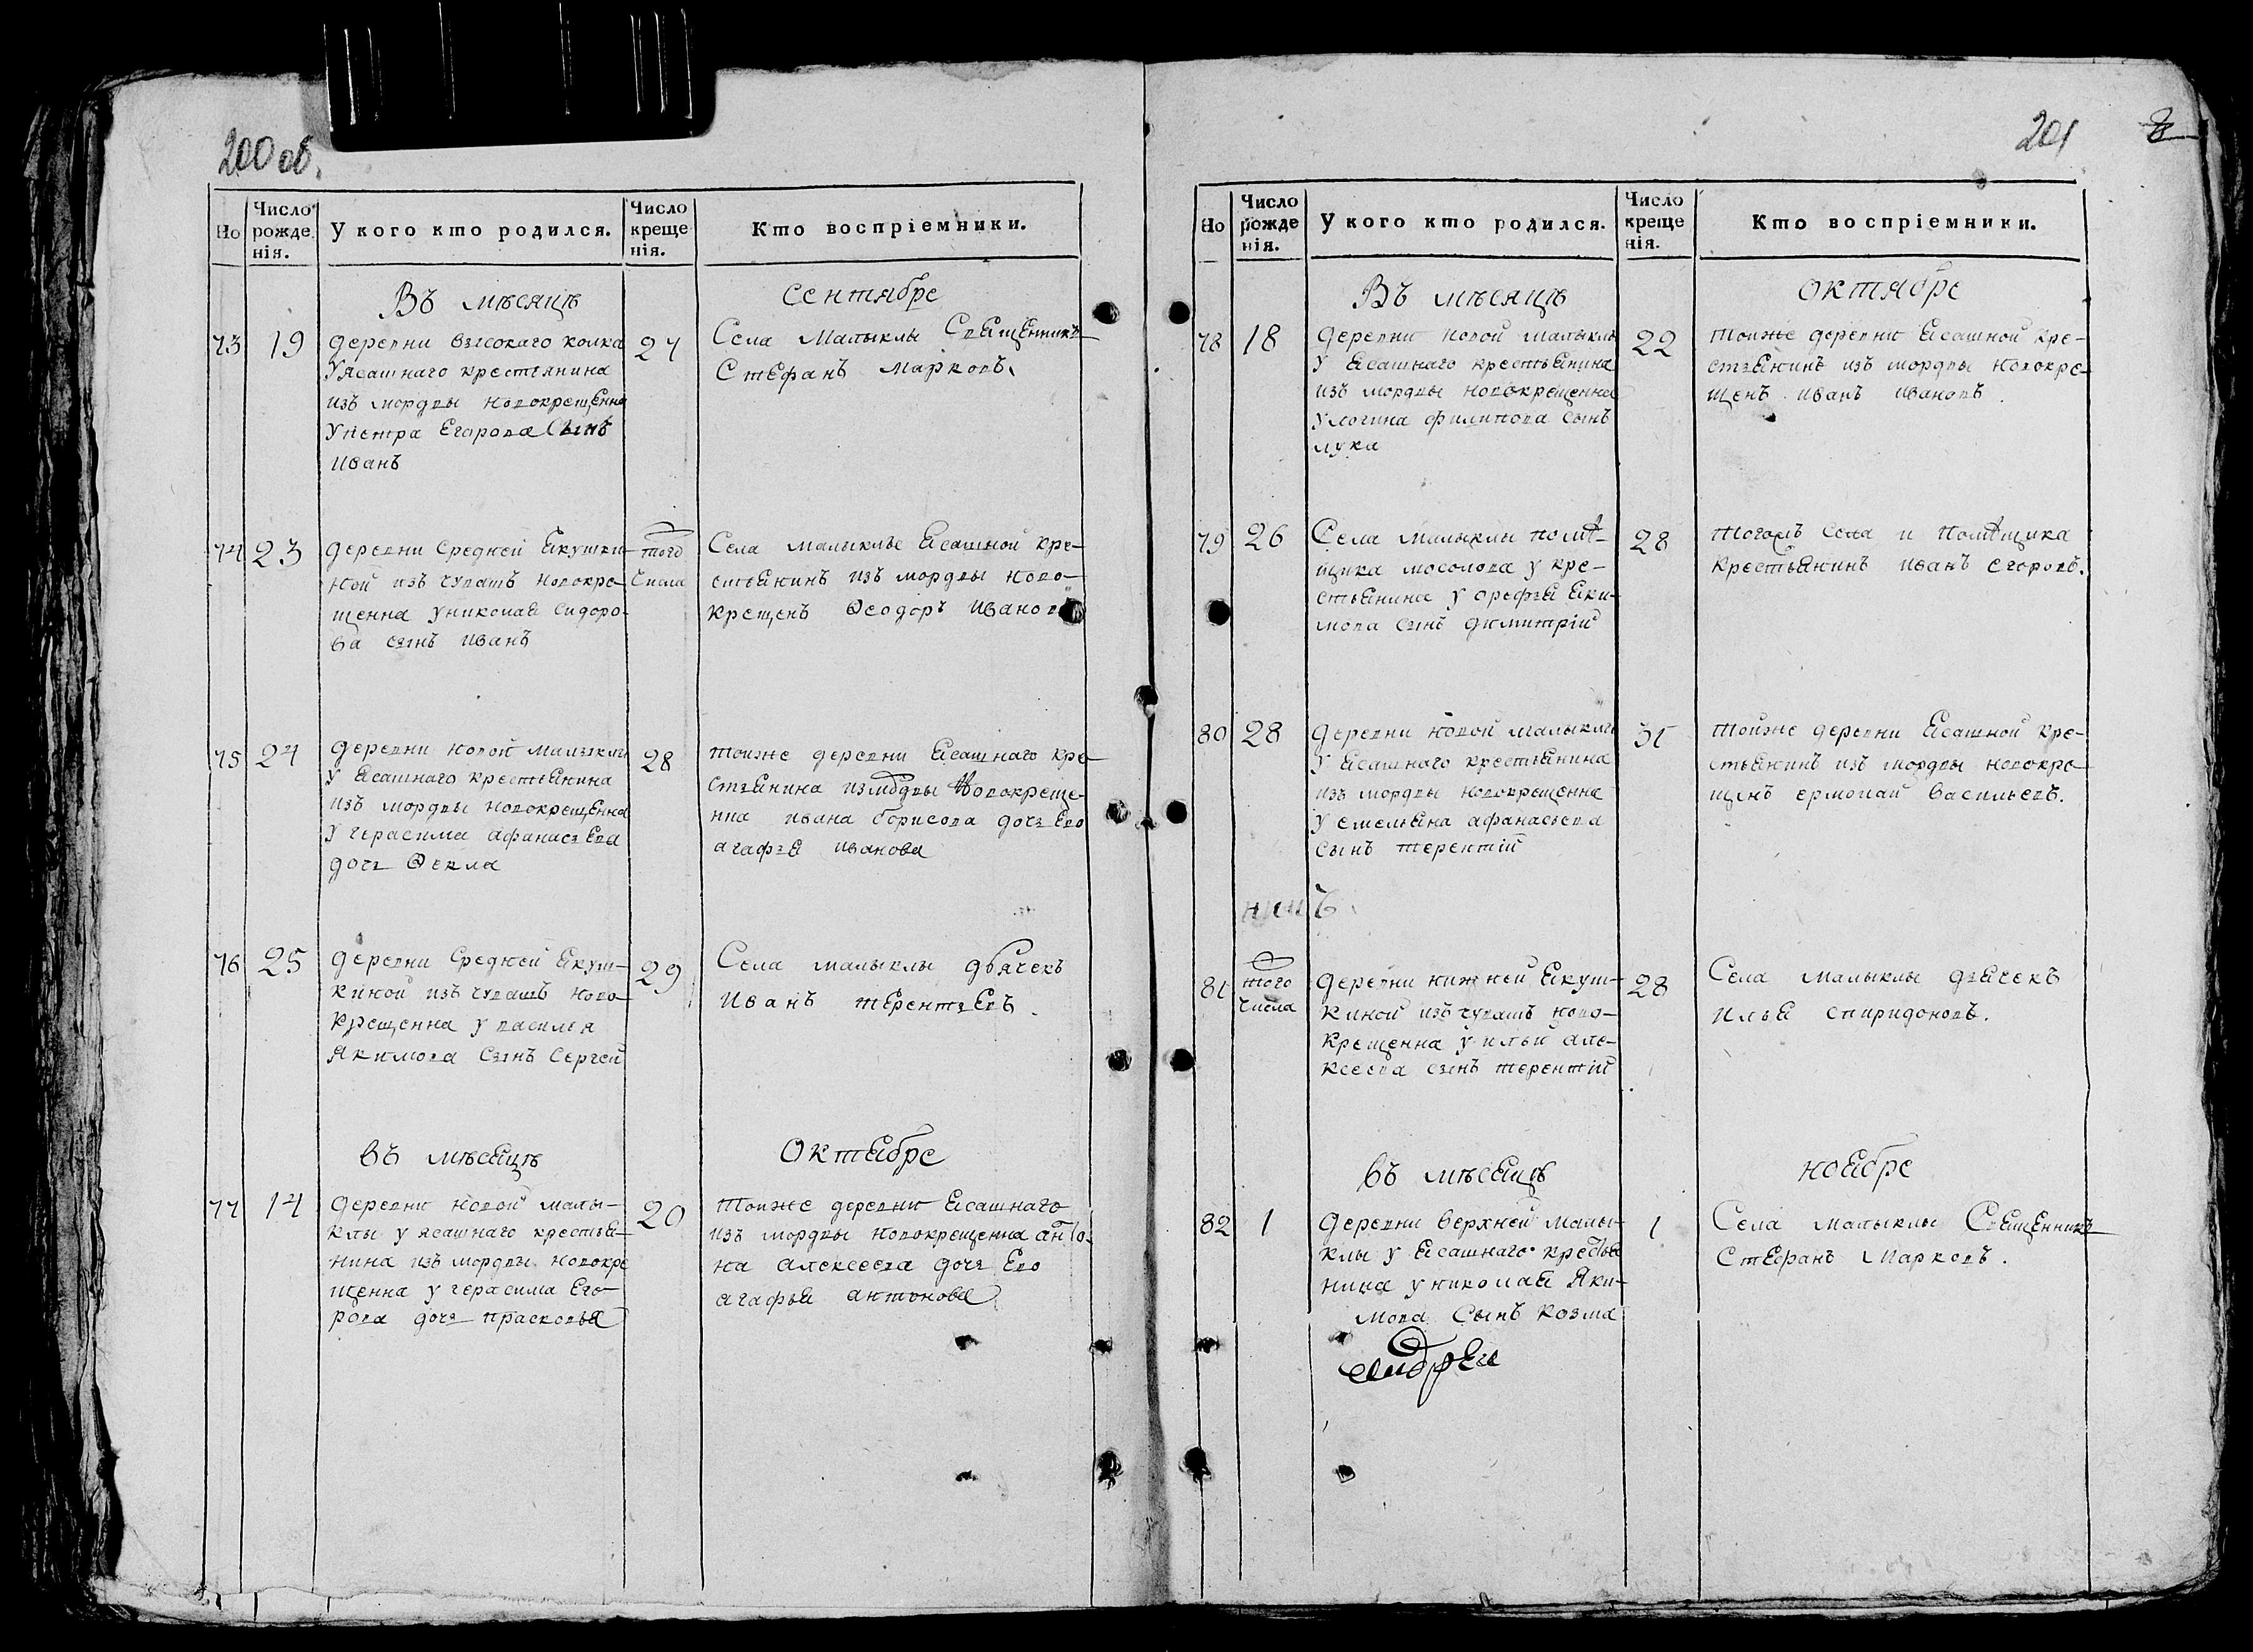 200 об.
Но
Число рожденія.
У кого кто родился.
Число крещенія.
Кто воспріемники.
Въ мѣсяцѣ
Сентябре
73
19
деревни высокаго колка
Уясашнаго крестьянина
изъ мордвы новокрещенна
Упетра Егорова Сынъ
Иванъ
27
Села Малыклы Священникъ
Стефанъ Марковъ.
74
23
деревни Средней Якушки-
ной изъ чувашъ новокре-
щенна Униколая Сидоро-
ва сынъ Иванъ
того
числа
Села малыклы Ясашной кре-
стьянинъ изъ мордвы ново-
крещенъ Ѳеодоръ Иванов
75
24
деревни новой малыклы
У Ясашнаго крестьянина
изъ мордвы новокрещенна
У герасима афанасьева
дочь Ѳекла
28
тойже деревни Ясашнаго кре-
стьянина измодвы Новокреще-
нна ивана борисова дочь Ево
агафья Иванова
76
25
деревни Средней Якуш-
киной изъ чувашъ ново-
крещенна у василья
Якимова Сынъ Сергей
29
Села малыклы дьячекъ
Иванъ терентьевъ.
въ мѣсяцѣ
Октябре
77
14
деревни новой малы-
клы у ясашнаго крестья-
нина изъ мордвы новокре
щенна у герасима Его-
рова дочь прасковья
20
тойже деревни Ясашнаго
изъ мордвы новокрещенна анто-
на алексеева дочь Ево
агафья антонова
201
8
Но
Число рожденія.
У кого кто родился.
Число крещенія.
Кто воспріемники.
Въ мѣсяцѣ
октябре
78
18
деревни новой малыклы
У Ясашнаго крестьянина
изъ мордвы новокрещенна
Улогина филипова сынъ
лука
22
тойже деревни Ясашной кре-
стьянинъ изъ мордвы новокре-
щенъ иванъ ивановъ.
79
26
Села малыклы помѣ-
щика мосолова у кре-
стьянина у орефья Яки-
мова сынъ димитрій
28
тогожъ села и помѣщика
крестьянинъ иванъ егоровъ.
80
28
деревни новой малыклы
У Ясашнаго крестьянина
изъ мордвы новокрещенна
У емельяна афанасьева
сынъ терентій
31
тойже деревни Ясашной кре-
стьянинъ изъ мордвы новокре-
щенъ ермолай васильевъ.
81
того
числа
деревни нижней Якуш-
киной изъ чувашъ ново-
крещенна у ильи але-
ксеева сынъ терентій
28
Села малыклы дьячекъ
Илья спиридоновъ.
въ мѣсяцѣ
ноябре
82
1
деревни верхней малы-
клы у Ясашнаго крестья
нина у николая Яки-
мова Сынъ козма
1
Села малыклы Священникъ
Стефанъ Марковъ.
андреи